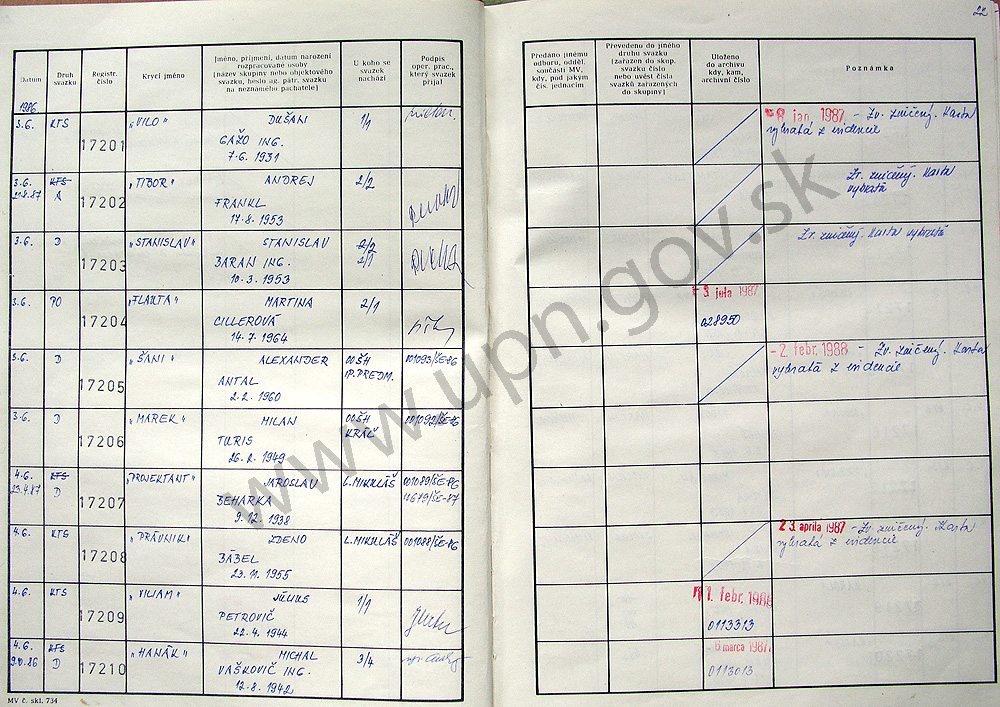 22
Datum
Druh
svazku
Registr.
číslo
Krycí jméno
Jméno, příjmení, datum narození
rozpracované osoby
[název skupiny nebo objektového
svazku, heslo ag. pátr. svazku
na neznámého pachatele]
U koho se
svazek
nachází
Podpis
oper. prac.,
který svazek
přijal
Předáno jinému
odboru, odděl.
součásti MV,
kdy, pod jakým
čís. jednacím
Převedeno do jiného
druhu svazku
[zařazen do skup.
svazku číslo
nebo uvést čísla
svazků zařazených
do skupiny]
Uloženo
do archivu
kdy, kam,
archivní číslo
Poznámka
1986
3.6. KTS 17201 „VILO" DUŠAN 1/1
GAŽO ING.
7.6. 1931
8 jan. 1987 - Zv. zničený. Karta
vybratá z evidencie
3.6. KTS 17202 „TIBOR" ANDREJ 2/2
A
FRANKL
17.8. 1953
Zv. zničený. Karta
vybratá
3.6. D 17203 „STANISLAV" STANISLAV 2/2
BARAN ING. 2/1
10.3. 1953
Zv. zničený. Karta vybratá
3.6. PO 17204 „FLAUTA" MARTINA 2/1
CILLEROVÁ
14.7. 1964
3. júla 1987
028950
3.6. D 17205 „ŠANI" ALEXANDER OOŠH 001093/ŠE-86
IP. PREDM.
ANTAL
2.2. 1960
- 2. febr. 1988 - Zv. zničený. Karta
vybratá z evidencie
3.6. D 17206 „MAREK" MILAN OOŠH 001092/ŠE-86
KRÁĽ
TURIS
26.2. 1949
4.6. KTS 17207 „PROJEKTANT" JAROSLAV L. MIKULÁŠ 001089/ŠE-86
23.4.87 D
BEHARKA
9.12. 1938
4.6. KTS 17208 „PRÁVNIK" ZDENO L. MIKULÁŠ 001088/ŠE-86
BÁBEL
23.11. 1955
23. apríla 1987 - Zv. zničený. Karta
vybratá z evidencie
4.6. KTS 17209 „VILIAM" JÚLIUS 1/1
PETROVIČ
22.4. 1944
1. febr. 1988
0113313
4.6. KTS 17210 „HANÁK" MICHAL 3/4
D
VAŠKOVIČ ING.
12.8. 1942
6. marca 1987
0113013
MV č. skl. 734
www.upn.gov.sk